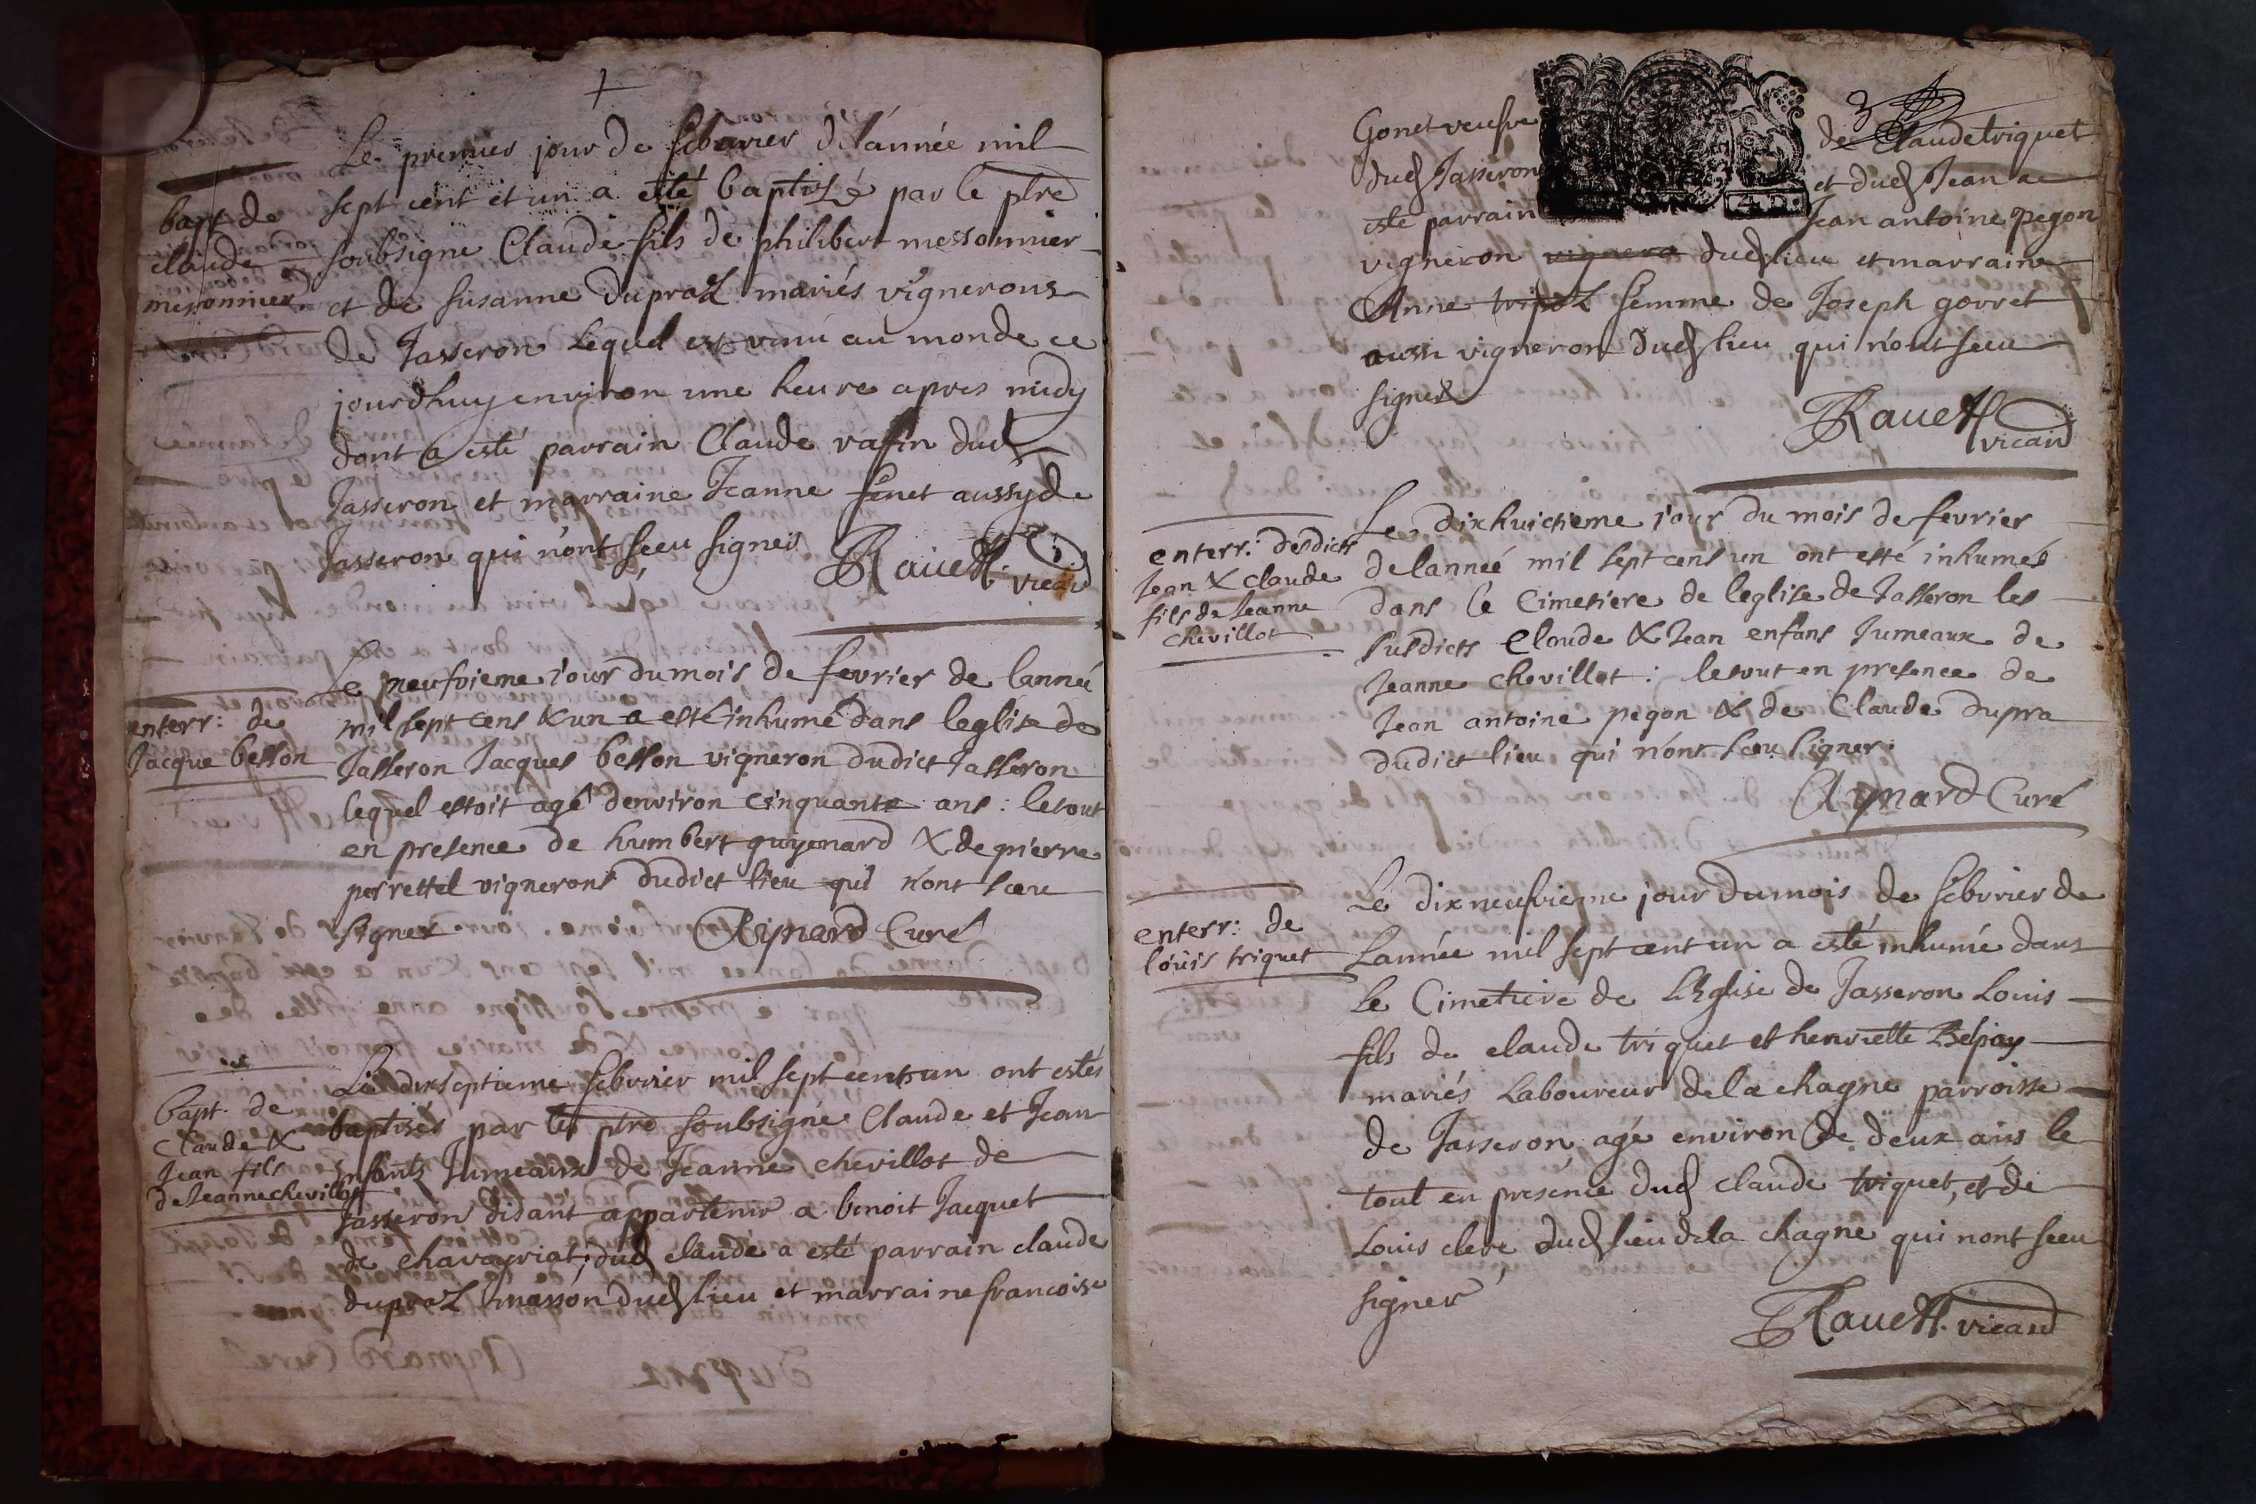 Le premier jour de febvrier de l'année mil
bapt de
claude
messonnier
sept cent et un a esté baptizé par le pbre
soubsigne Claude fils de philibert messonnier
et de susanne dupraz mariés vignerons
de Jasseron lequel est venu au monde ce
jourdhuy environ une heure apres midy
dont a esté parrain Claude vafin dud
Jasseron et marraine Jeanne fenet aussy de
Jasseron qui n'ont sceu signer
Rauett vicaire
Le neufvieme jour du mois de fevrier de lanneé
enterr: de
Jacque besson
mil sept cens & un a esté inhumé dans leglise de
Jasseron Jacques besson vigneron dudict Jasseron
lequel estoit agé denviron cinquante ans: le tout
en presence de humbert guyenard & de pierre
perrettel vignerons dudict lieu qui n'ont sceu
signer Aynard Curé
Le dixseptieme febvrier mil sept cent un ont estés
bapt. de
Claude &
Jean fils
de Jeanne chevillot
baptisés par le pbre soubsigné Claude et Jean
enfants Jumeaux de Jeanne chevillot de
Jasseron disant appartenir a benoit Jacquet
de chavayriat; dud claude a esté parrain claude
dupraz masson dud lieu et marraine francoise
3
Gonet veufve de Claude triquet
dud Jasseron et dud Jean a
esté parrain Jean antoine pegon
vigneron vignero dud lieu et marraine
Anne tripoz femme de Joseph gorret
aussi vigneron dud lieu qui n'ont sceu
signer
Rauett
vicaire
Le dixhuictieme jour du mois de fevrier
enterr: desdicts
Jean & claude
fils de Jeanne
chevillot
delanneé mil sept cens un ont esté inhumés
dans le cimetiere de leglise de Jasseron les
susdicts Claude & Jean enfans Jumeaux de
Jeanne chevillot: le tout en presence de
Jean antoine pegon & de Claude dupra
dudict lieu qui n'ont sceu signer.
Aynard Curé
Le dixneufvieme jour du mois de febvrier de
enterr: de
loüis triquet
Lannée mil sept cent un a esté inhumé dans
le Cimetiere de L'Eglise de Jasseron Louis
fils de claude triquet et henriette Belpay
mariés Laboureur de la chagne parroisse
de Jasseron agé environ de deux ans le
tout en présence dud claude triquet, et de
Louis clere dud lieu de la chagne qui n'ont sceu
signer
Rauett. vicaire